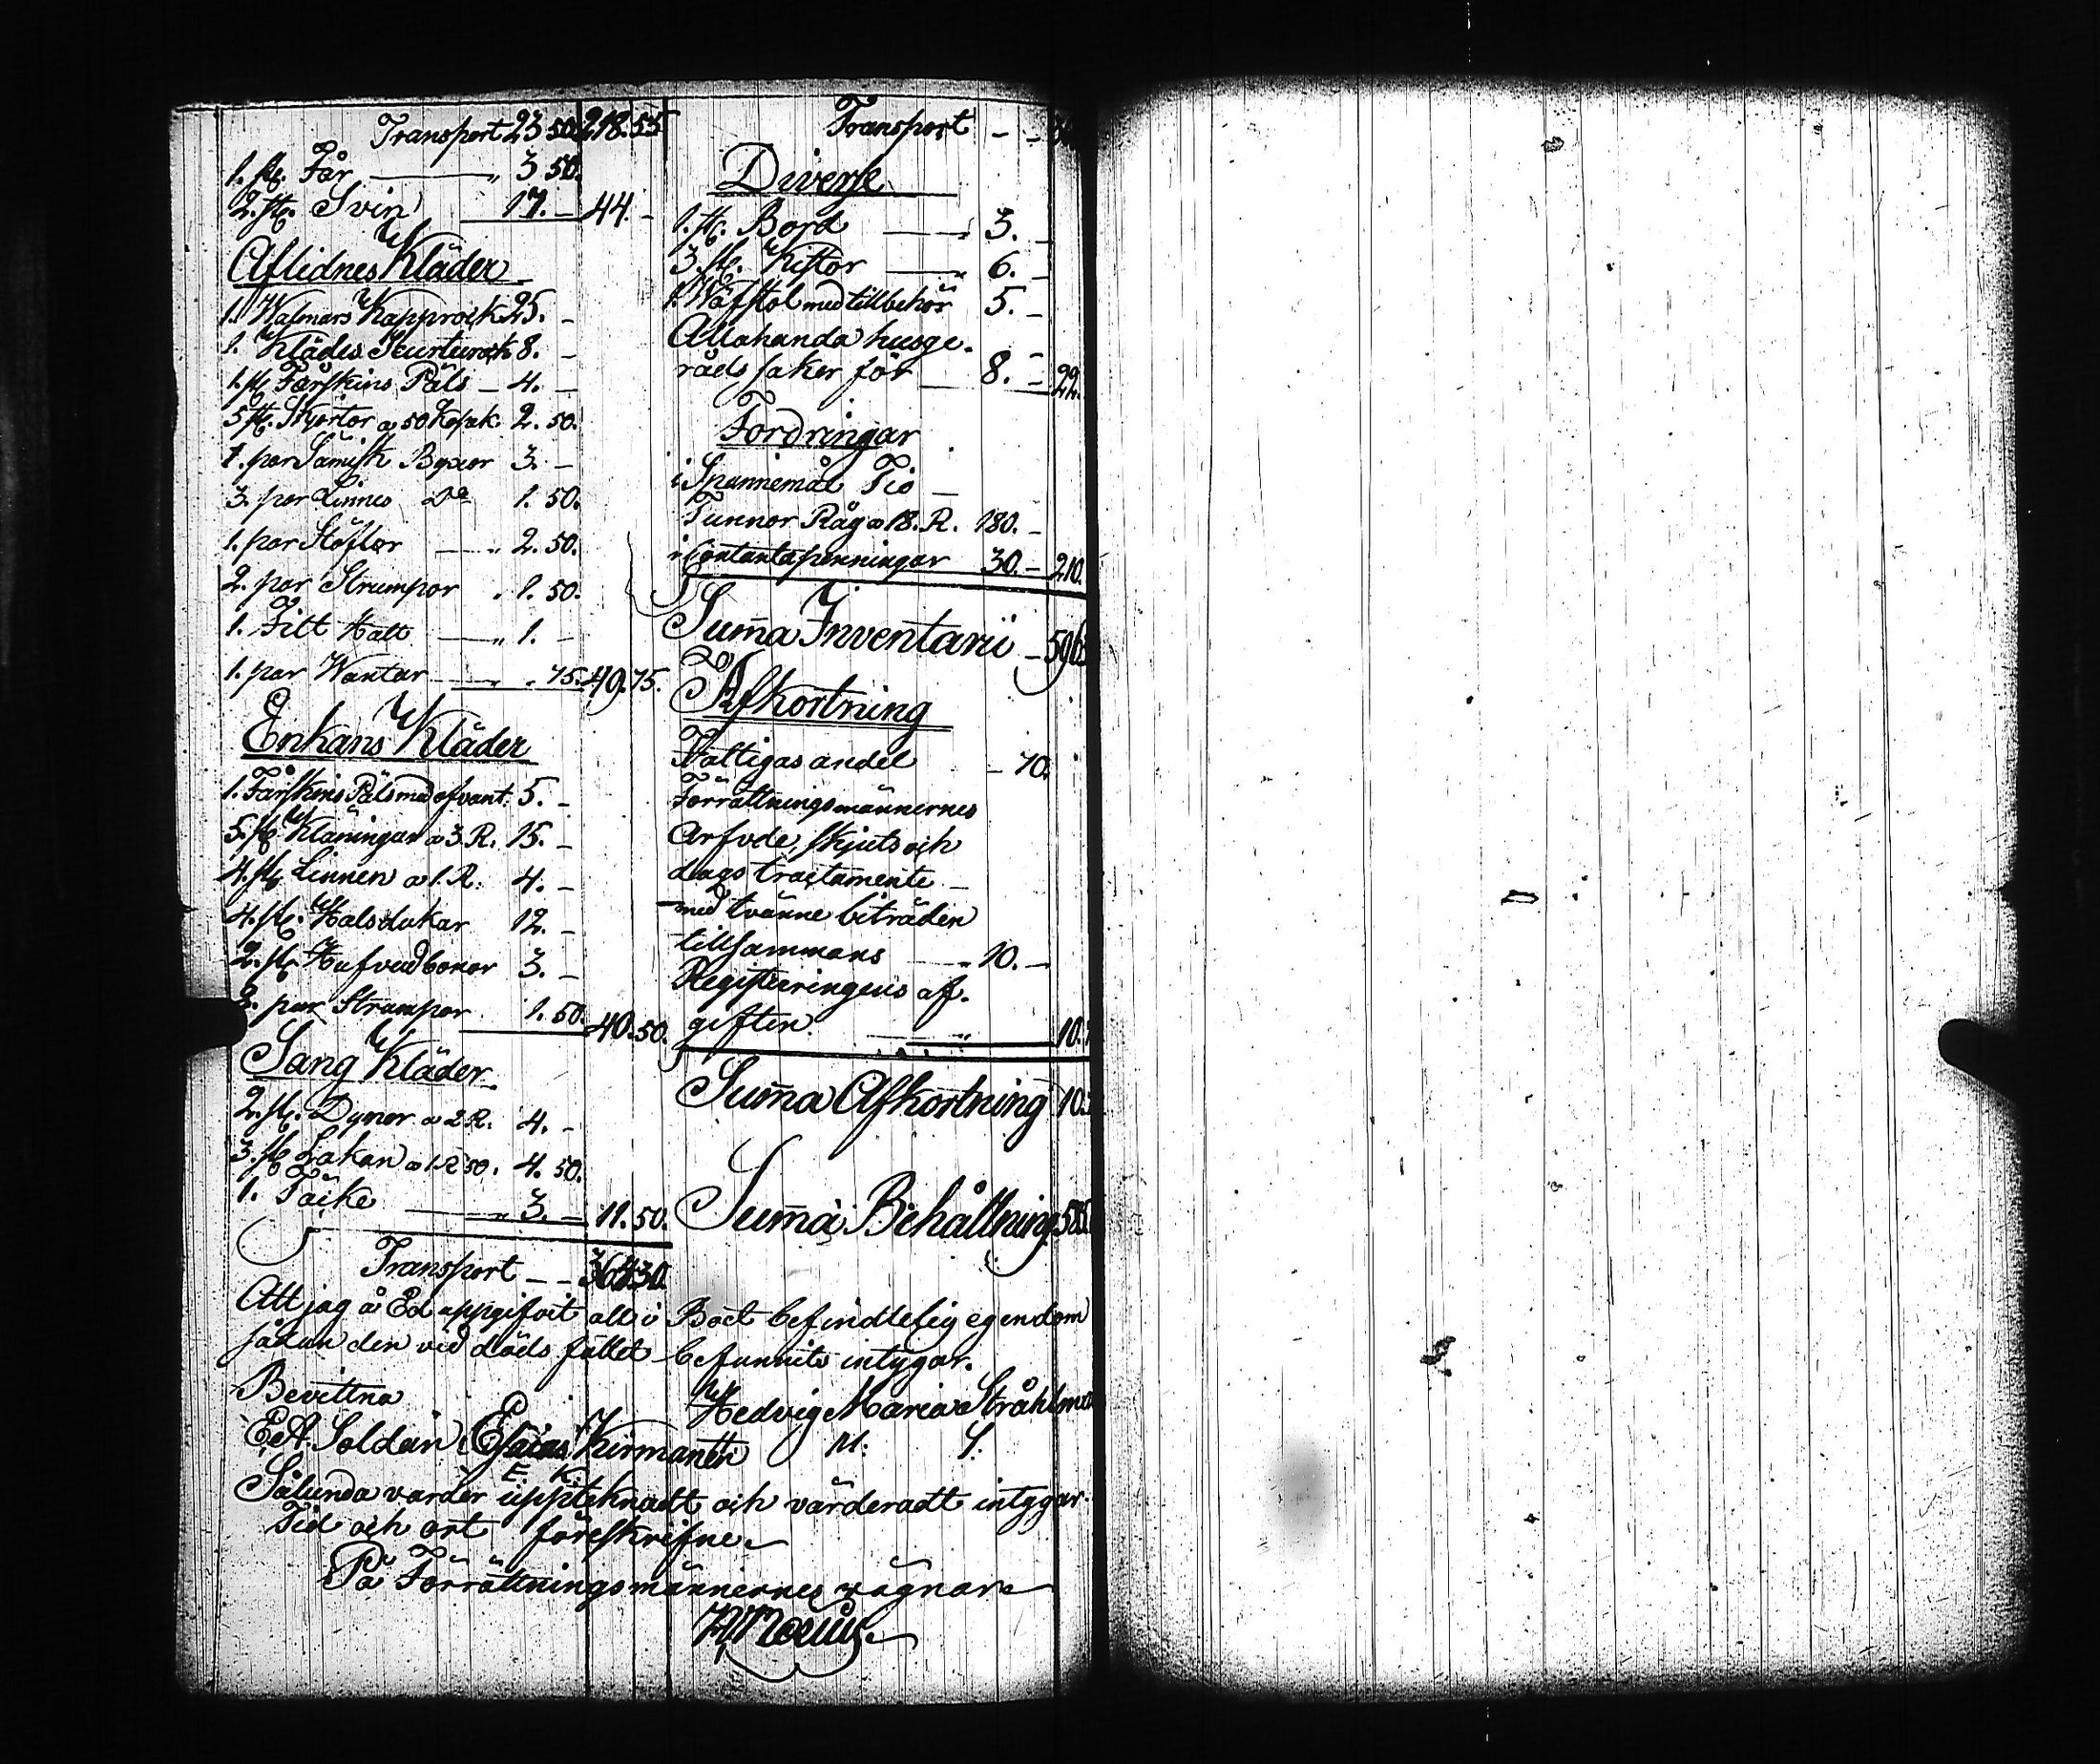 Transport 23 50. 218. 55
1. st. Får — „ 3 50.
2. st. Svin 17. — 44. —
Aflidnes Kläder
1. Walmars Kapprock 25. —
1. Klädes Skurturock 8. —
1. st. Fårskins Päls — 4. —
5 st. Skjortor a 50 Kopek 2. 50.
1. par Sämisk Byxor 3. —
3. par Linnes Do 1. 50.
1. par Stöflor — „ 2. 50.
2. par Strumpor „ 1. 50.
1. Filt Hatt — „ 1. —
1. par Wantar — „ . 75. 49. 75.
Enkans Kläder
1. Fårskins Päls med ofvant. 5. —
5. st. Kläningar a 3. R. 15. —
4. st. Linnen a 1. R. 4. —
4. st. Halsdukar 12. —
2. st. Hufvudbonor 3. —
2. par Strumpor 1. 50. 40. 50.
Säng Kläder
2. st. Dynor a 2 R. 4. —
3. st. Lakan a 1 R 50. 4. 50.
1. Täcke — „ 3. — 11. 50.
Transport — — 364 30.
Transport — —
Diverse
1. st. Bord — „ 3. —
3. st. Kistor — „ 6. —
1. Wäfstol med tillbehör 5. —
Allahanda husge-
råds saker för — 8. — 22.
Fordringar
i Spannemål Tio —
Tunnor Råg a 18. R. 180. —
i Contanta penningar 30. — 210.
Suma Inventarii — 596
Afkortning
Fattigas andel — 70.
Förrättningsmännernes
arfvode, skjuts och
dags tractamente —
med tvänne biträden
tillsammans — „ 10. —
Registeringens af-
giften — „ 10.
Suma Afkortning 10.
Suma Behållning 585
Att jag å Ed uppgifvit allt i Boet befindtelig egendom
sådan den vid döds fallet befunnits intygar.
Bevittna Hedvig Maria Stråhlman
E. A. Soldan Esaias Kirmanen M. S.
E. K.
Sålunda varder upptecknadt och värderadt intygar.
Tid och ort föreskrifne.
På Förrättningsmännernes vägnar